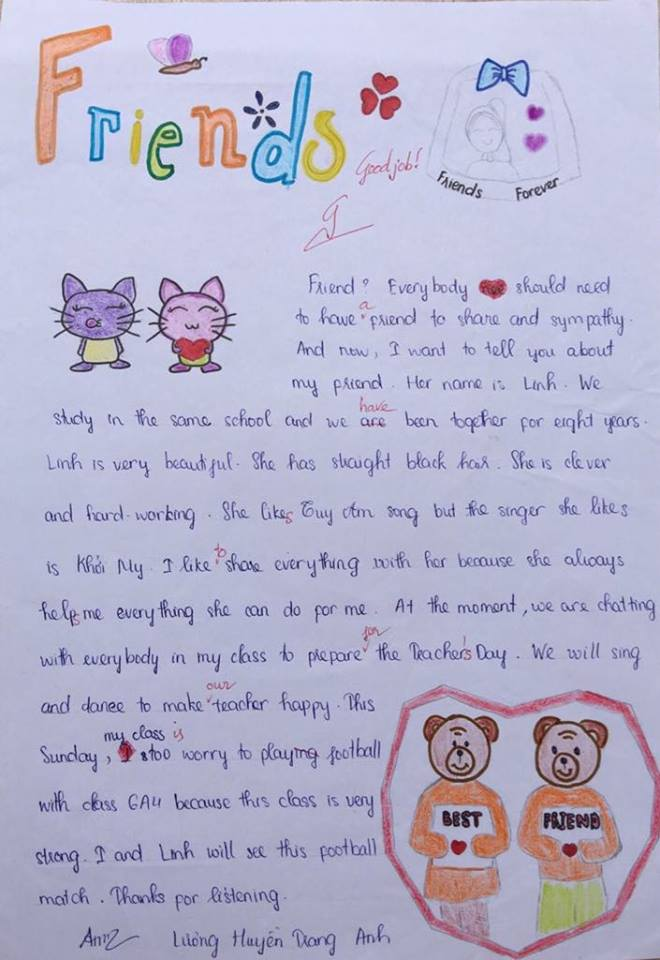 Friends
Good job!
Friends Forever
9
Friend? Everybody should need
to have a friend to share and sympathy.
And now, I want to tell you about
my friend. Her name is Linh. We
study in the same school and we are have been together for eight years.
Linh is very beautiful. She has straight black hair. She is clever
and hard-working. She likes Tuy Âm song but the singer she likes
is Khởi My. I like to share everything with her because she always
helps me everything she can do for me. At the moment, we are chatting
with everybody in my class to prepare for the Teacher's Day. We will sing
and dance to make our teacher happy. This
Sunday, my class is too worry to playing football
with class 6A4 because this class is very
strong. I and Linh will see this football
match. Thanks for listening.
BEST
FRIEND
Lương Huyền Trang Anh